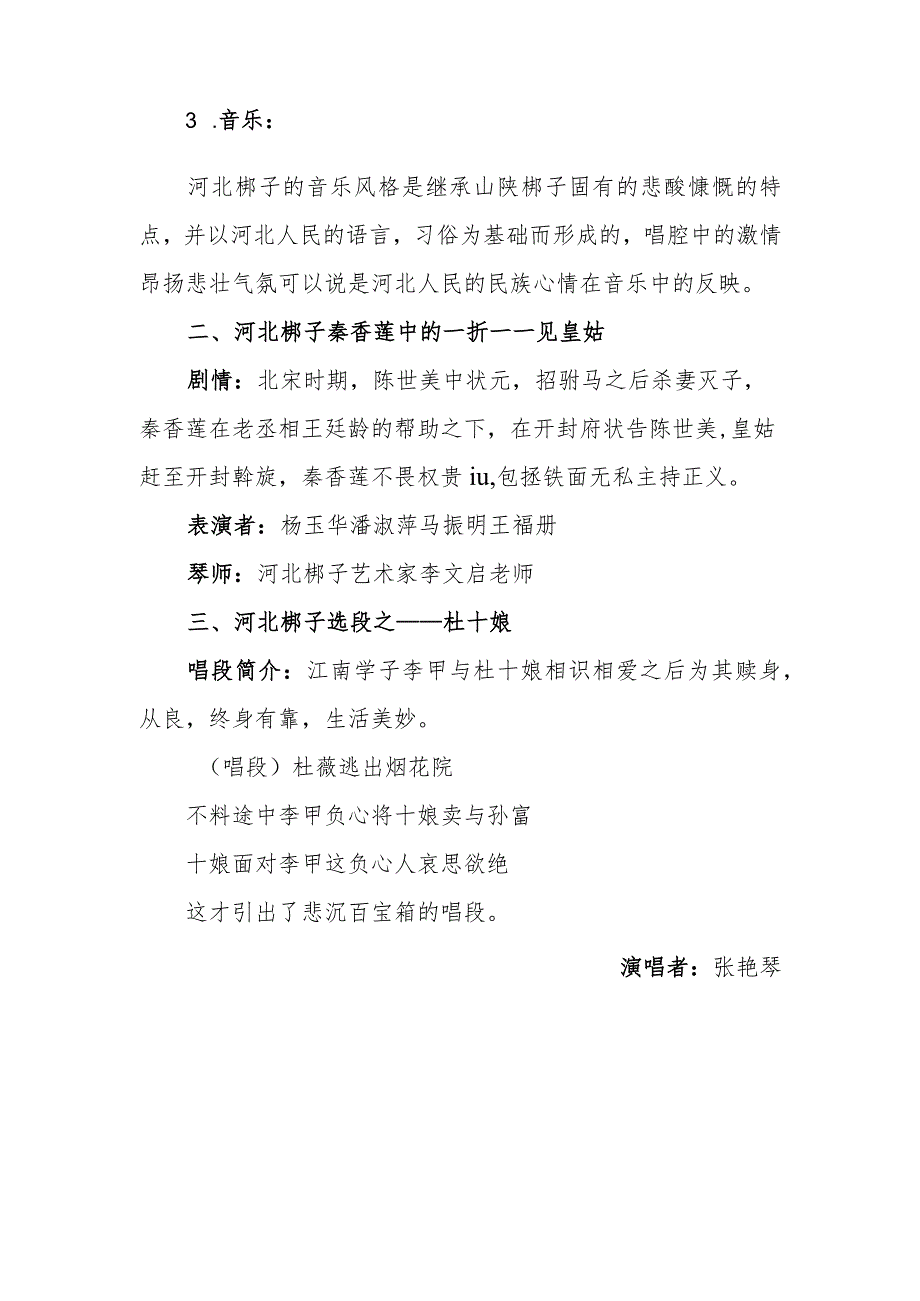 3 .音乐：
河北梆子的音乐风格是继承山陕梆子固有的悲酸慷慨的特
点，并以河北人民的语言，习俗为基础而形成的，唱腔中的激情
昂扬悲壮气氛可以说是河北人民的民族心情在音乐中的反映。
二、河北梆子秦香莲中的一折一一见皇姑
剧情：北宋时期，陈世美中状元，招驸马之后杀妻灭子，
秦香莲在老丞相王廷龄的帮助之下，在开封府状告陈世美,皇姑
赶至开封斡旋，秦香莲不畏权贵 iu,包拯铁面无私主持正义。
表演者：杨玉华潘淑萍马振明王福册
琴师：河北梆子艺术家李文启老师
三、河北梆子选段之——杜十娘
唱段简介：江南学子李甲与杜十娘相识相爱之后为其赎身，
从良，终身有靠，生活美妙。
（唱段）杜薇逃出烟花院
不料途中李甲负心将十娘卖与孙富
十娘面对李甲这负心人哀思欲绝
这才引出了悲沉百宝箱的唱段。
演唱者：张艳琴